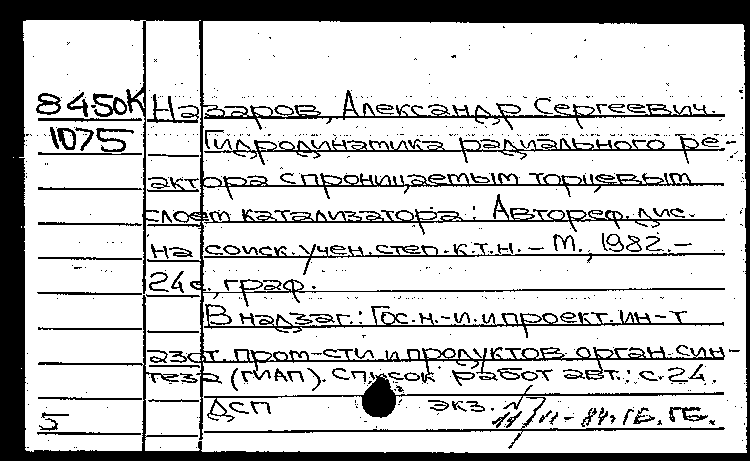 8450К Назаров, Александр Сергеевич.
1075 Гидродинамика радиального ре-
актора с проницаемым торцевым
слоем катализатора: Автореф. дис.
на соиск. учен. степ. к.т.н. – М., 1982. –
24 с., граф.
В надзаг.: Гос. н.-и. и проект. ин-т
азот. пром-сти и продуктов орган. син-
теза (ГИАП). Список работ авт.: с. 24.
ДСП экз. №
5 84. ГБ. ГБ.